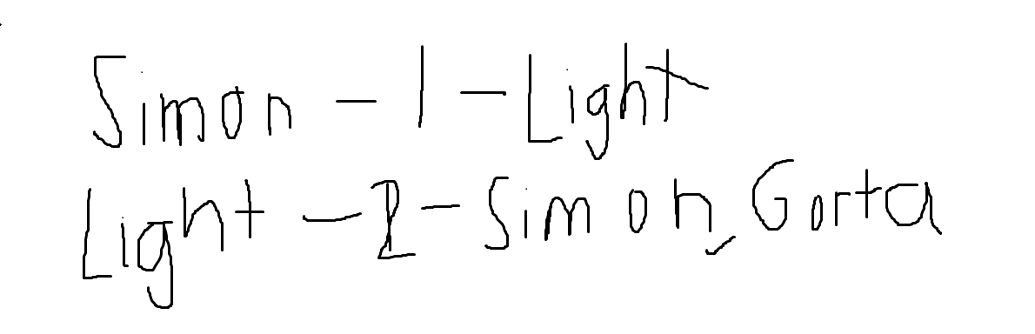 Simon - 1 - Light
Light - 2 - Simon, Gorta